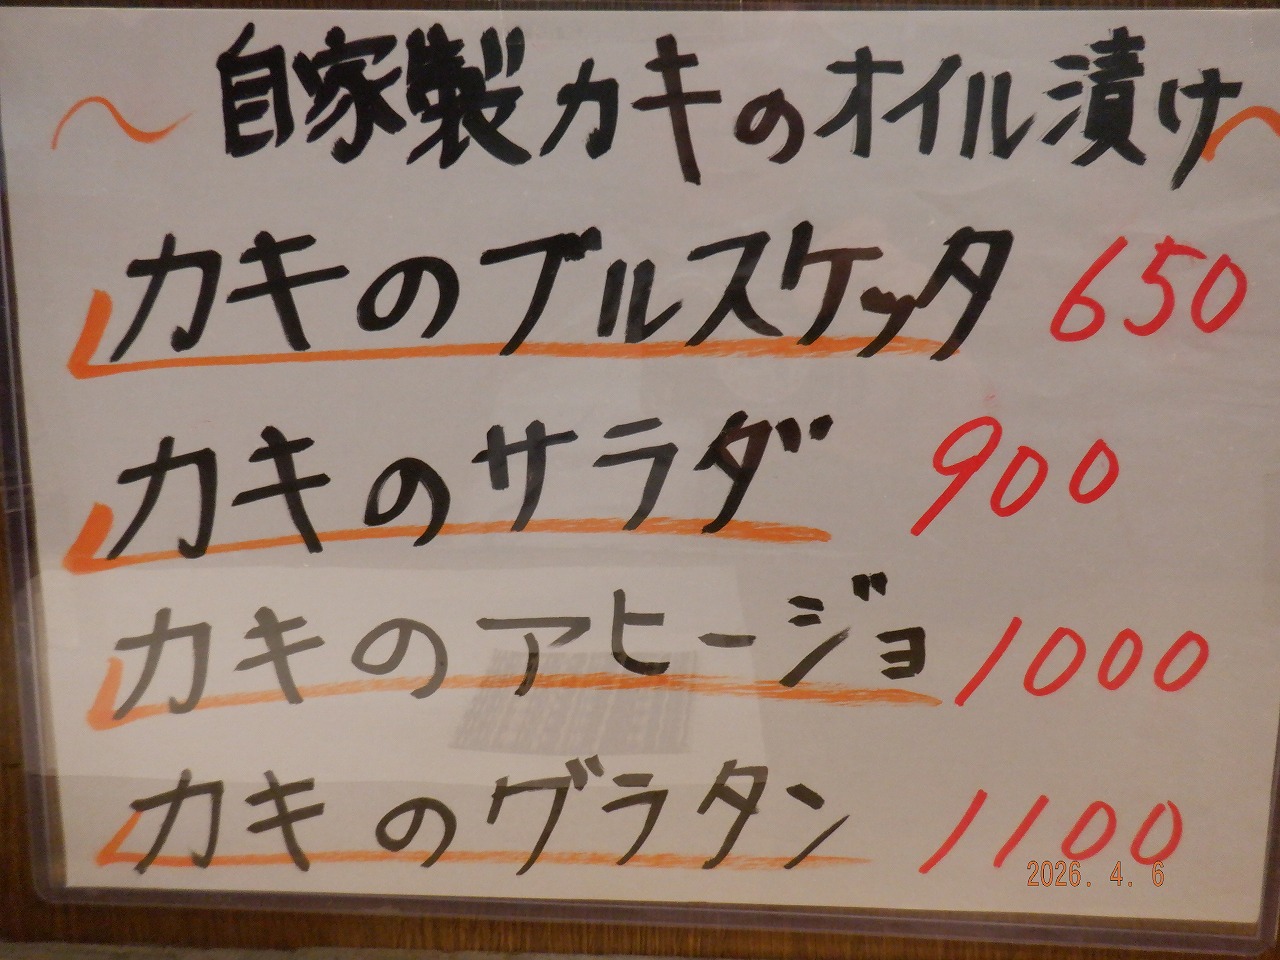 〜 自家製カキのオイル漬け〜
カキのブルスケッタ 650
カキのサラダ 900
カキのアヒージョ 1000
カキのグラタン 1100
2026. 4. 6